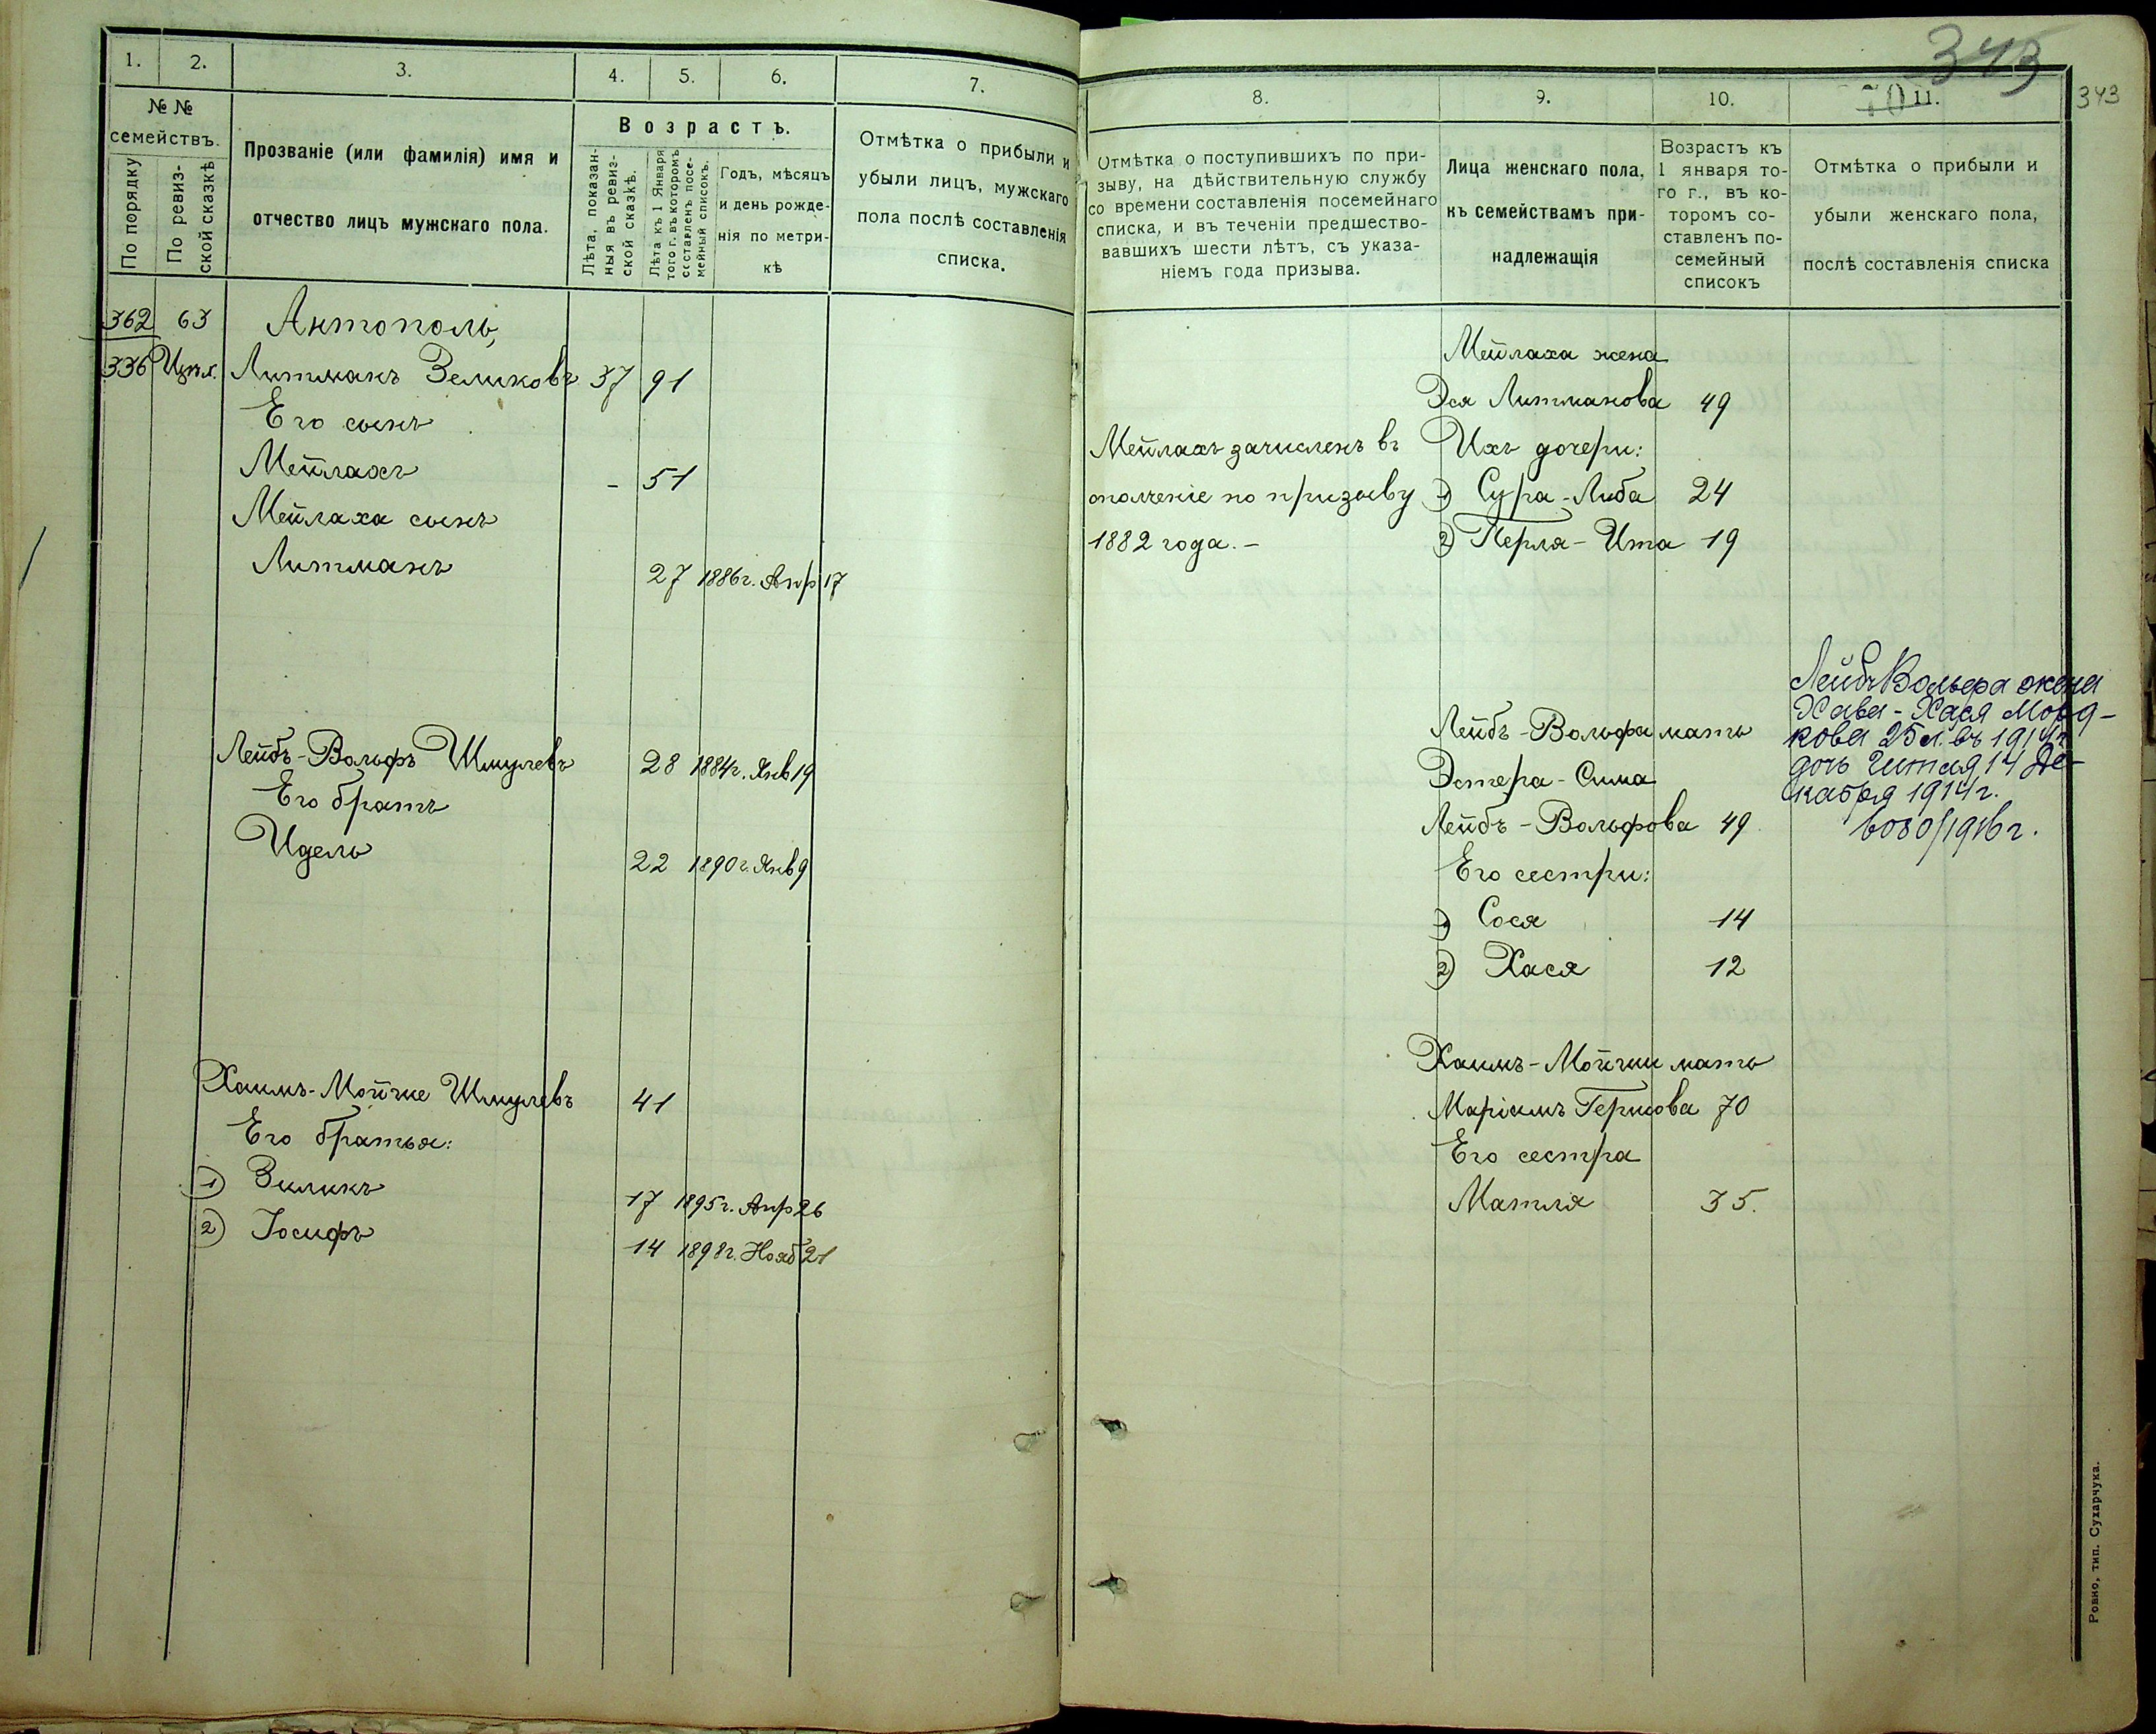 1.
2.
3.
4.
5.
6.
7.
№ №
семействъ.
По порядку
По ревиз-
ской сказкѣ
Прозваніе (или фамилія) имя и
отчество лицъ мужскаго пола.
Возрастъ.
Лѣта, показан-
ныя въ ревиз-
ской сказкѣ.
Лѣта къ 1 Января
того г. въ которомъ
составленъ посе-
мейный списокъ.
Годъ, мѣсяцъ
и день рожде-
нія по метри-
кѣ
Отмѣтка о прибыли и
убыли лицъ, мужскаго
пола послѣ составленія
списка.
362 63 Антополь,
336 Литманъ Зеликовъ 37 91
Его сынъ
Мейлахъ - 51
Мейлаха сынъ
Литманъ 27 1886г. Апр 17
Лейбъ-Вольфъ Шмулевъ 28 1884г. Янв 19
Его братъ
Идель 22 1890г. Янв 9
Хаимъ-Мойше Шмулевъ 41
Его братья:
1) Зиликъ 17 1895г. Апр 26
2) Іосифъ 14 1898г. Нояб 21
343
343
8.
9.
10.
70
11.
Отмѣтка о поступившихъ по при-
зыву, на дѣйствительную службу
со времени составленія посемейнаго
списка, и въ теченіи предшество-
вавшихъ шести лѣтъ, съ указа-
ніемъ года призыва.
Лица женскаго пола,
къ семействамъ при-
надлежащія
Возрастъ къ
1 января то-
го г., въ ко-
торомъ со-
ставленъ по-
семейный
списокъ
Отмѣтка о прибыли и
убыли женскаго пола,
послѣ составленія списка
Мейлахъ зачисленъ въ
ополченіе по призыву
1882 года.-
Мейлаха жена
Эся Литманова 49
Ихъ дочери:
1) Сура-Либа 24
2) Перля-Ита 19
Лейбъ-Вольфа мать
Эстера-Сима
Лейбъ-Вольфова 49
Его сестри:
1) Сося 14
2) Хася 12
Лейбъ Вольфа жена
Хава-Хася Морд-
кова 25 л. въ 1914г
дочь Гитля 14 Де-
кабря 1914г.
6080/1916г.
Хаимъ-Мойши мать
Маріямъ Гершова 70
Его сестра
Матля 35.
Ровно, тип. Сухарчука.